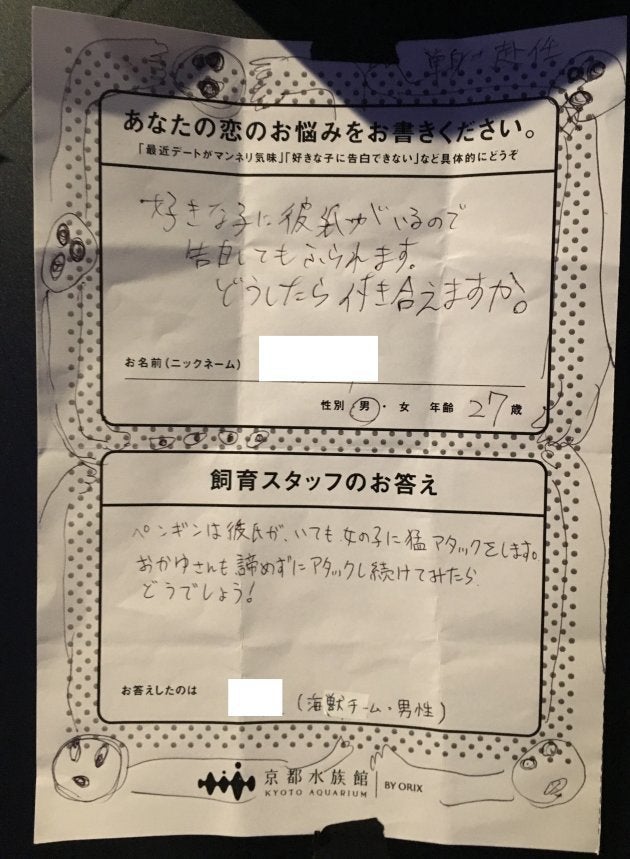 単身赴任
あなたの恋のお悩みをお書きください。
「最近デートがマンネリ気味」「好きな子に告白できない」など具体的にどうぞ
好きな子に彼氏がいるので
告白してもふられます。
どうしたら付き合えますか。
お名前（ニックネーム）
性別 男・女 年齢 27歳
飼育スタッフのお答え
ペンギンは彼氏が、いても女の子に猛アタックをします。
おかゆさんも諦めずにアタックし続けてみたら
どうでしょう！
お答えしたのは
（海獣チーム・男性）
京都水族館 BY ORIX
KYOTO AQUARIUM